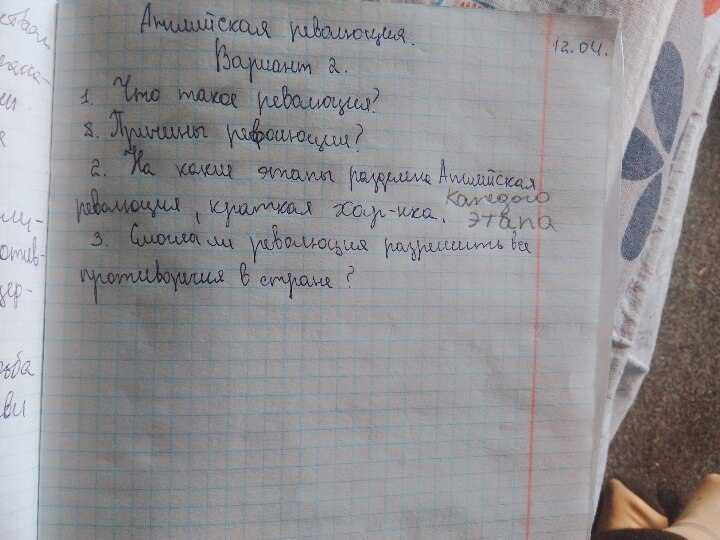 Английская революция.
12.04.
Вариант 2.
1. Что такое революция?
8. Причины революции?
2. На какие этапы разделена Английская
революция, краткая хар-ика. каждого
этапа
3. Смогла ли революция разрешить все
противоречия в стране?